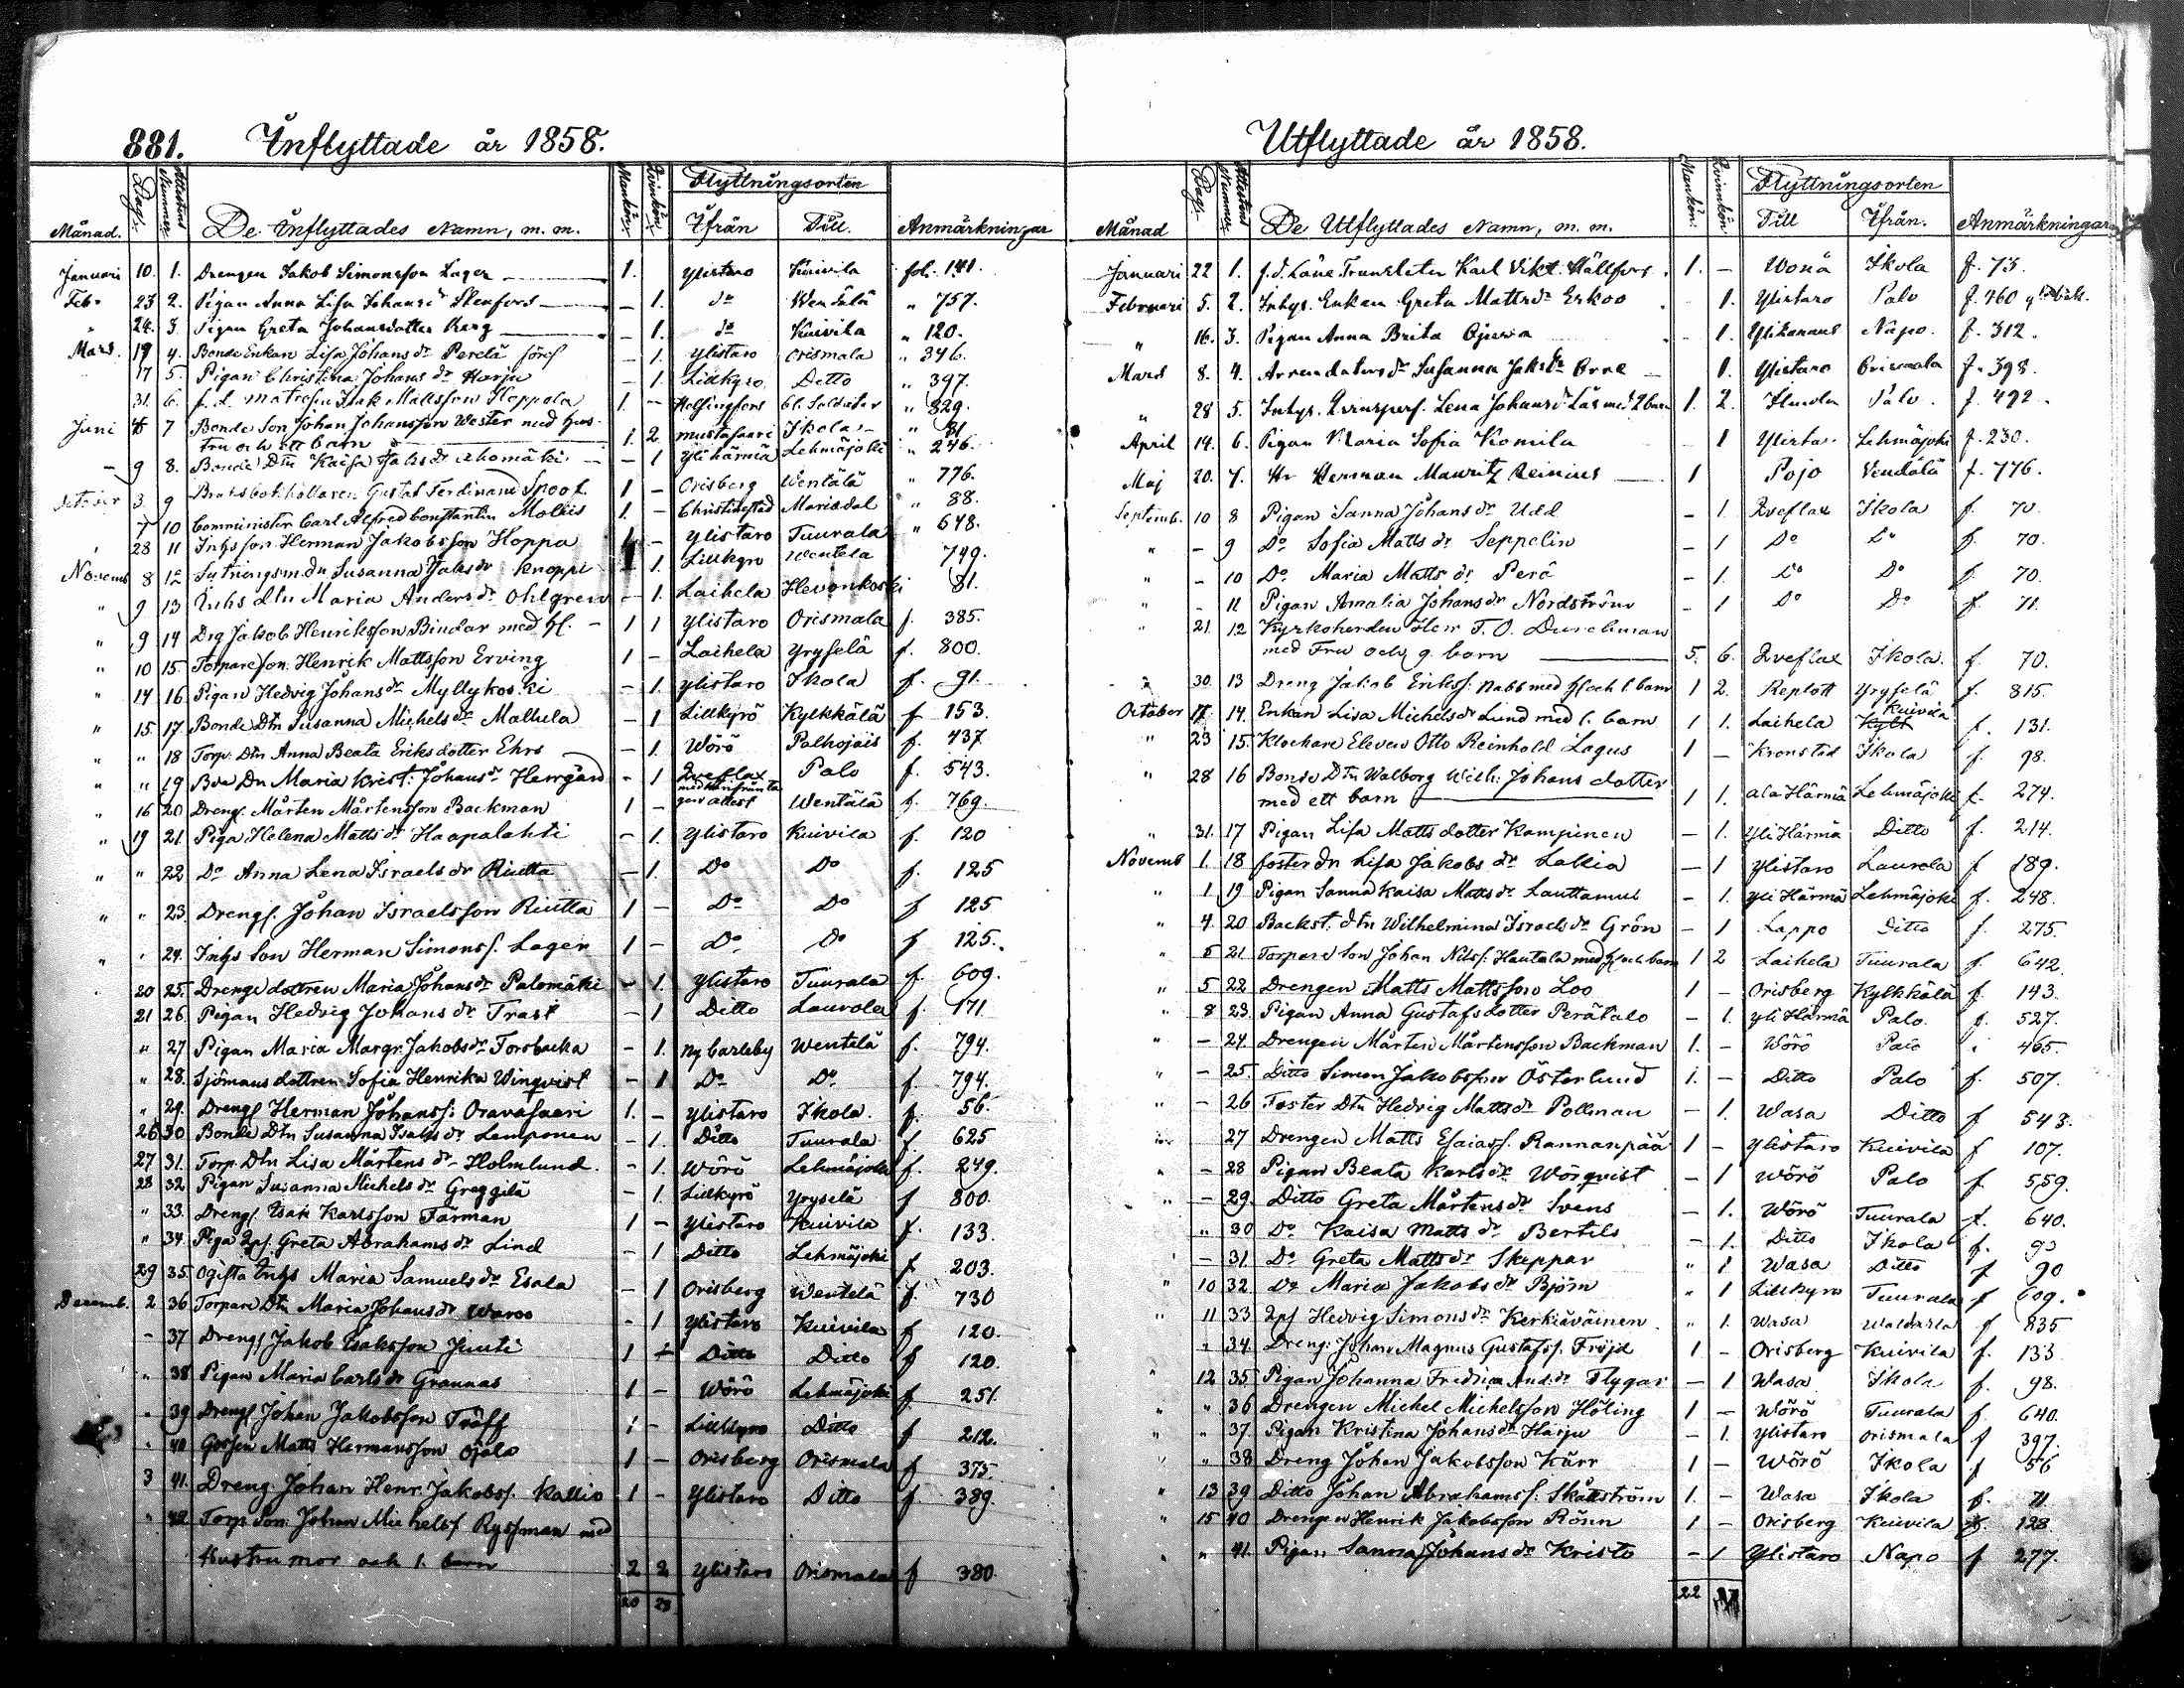 881. Inflyttade år 1858.
Månad. Dag. Attestens Nummer. De Inflyttades Namn, m. m. Mankön. Qvinkön. Flyttningsorten Ifrån Till. Anmärkningar
Januari 10. 1. Drengen Jakob Simonsson Lager 1. Ylistaro Kuivila fol. 141.
Feb. 23 2. Pigan Anna Lisa Johansdr Stenfors - 1. do Wentälä " 757.
" 24. 3. Pigan Greta Johansdotter Berg - 1. do Kuivila " 120.
Mars. 17 4. Bonde Enkan Lisa Johansdr Perelä - 1. Ylistaro Orismala " 346.
17 5. Pigan Christina Johansdr Harju - 1. Lillkyro Ditto " 397.
31. 6. f. d. Matrosen Isak Mattsson Hoppola 1. - Helsingfors " 829.
Juni 7 Bonde Son Johan Johansson Wester med hus-
tru och ett barn 1. 2. Mustasaari Ikola
- 9 8. Bonde Dtn Kaisa Jaksdr Ahomäki - 1 Yli härmä Lehmäjoki " 246.
October 3 9 Bruksbokhållaren Gustaf Ferdinand Spoof. 1 - Orisberg Wentälä " 776.
7 10 Comminister Carl Alfred Constantin Molliis 1. - Christinestad Mariedal " 88.
28 11 Inhs son Herman Jakobsson Hoppa - Ylistaro Tuurala " 648.
Novemb 8 12 Susanna Jaksdr Knoppi 1. Lillkyro Wentela 749.
" 9 13 Inhs dtn Maria Andersdr Ohlgren - 1. Laihela Hevonkoski 81.
" 9 14 Drg Jakob Henriksson Bindar med hl. 1 1 Ylistaro Orismala f. 385.
" 10 15. Torpare son Henrik Mattsson Erving 1 - Laihela Yryselä f. 800.
" 14 16. Pigan Hedvig Johansdr Myllykoski - 1. Ylistaro Ikola f. 91
" 15 17. Bonde Dtn Susanna Michelsdr Mallula - 1 Lillkyrö Kylkkälä f 153.
" " 18 Torp. Dtn Anna Beata Eriksdotter Ehrs - 1. Wörö Palhojais f. 437
" " 19 Bde Dn Maria Krist: Johansdr Herrgård - 1 Qveflax Palo f. 543.
" 16 20 Drengs. Mårten Mårtensson Backman 1 - Wentälä f. 769.
" 19 21. Piga Helena Mattsdr Haapalahti - 1. Ylistaro Kuivila f. 120
" " 22 Do Anna Lena Israelsdr Riutta - 1. Do Do f. 125
" " 23. Drengs. Johan Israelsson Riutta 1 - Do Do f 125
" " 24. Inhs Son Herman Simonss. Lager 1 - Do Do f 125.
20 25. Drenge dottren Maria Johansdr Palomäki - 1. Ylistaro Tuurala f. 609.
21 26. Pigan Hedvig Johansdr Trast - 1 Ditto Laurola f. 171
" 27 Pigan Maria Margr. Jakobsdr Forsbacka - 1. Ny Carleby Wentelä f. 794.
" 28. Sjömans dottren Sofia Henrika Winqvist - 1 Do Do f. 794.
" 29. Drengs Herman Johanss: Oravasaari 1. - Ylistaro Ikola. f. 56.
26 30 Bonde Dtn Susanna Isaksdr Lemponen - 1. Ditto Tuurala f 625
27 31. Torp. Dtn Lisa Mårtensdr Holmlund. - 1. Wörö Lehmäjoki f. 249.
28 32 Pigan Susanna Michelsdr Greggilä - 1. Lillkyrö Yryselä f 800
" 33. Drengs. Isak Karlsson Färman 1 - Ylistaro Kuivila f. 133.
" 34. Piga Qps. Greta Abrahamsdr Lind - 1 Ditto Lehmäjoki f 203.
29 35. Ogifta Inhs Maria Samuelsdr Esala - 1 Orisberg Wentelä f. 730
Decemb. 2 36 Torpare Dtn Maria Johansdr Waroo - 1 Ylistaro Kuivila f 120.
- 37 Drengs Jakob Isaksson Juuti 1 - Ditto Ditto f 120.
" 38 Pigan Maria Carlsdr Grannas 1 - Wörö Lehmäjoki f. 251.
" 39 Drengs Johan Jakobsson Träff 1 - Lillkyro Ditto f 212.
" 40 Gossen Matts Hermansson Ojala 1 - Orisberg Orismala f 375.
3 41. Dreng Johan Henr. Jakobss. Kallio 1 - Ylistaro Ditto f 389.
" 42 Torp. Son Johan Michelss Ryssman med
Hustru mor och 1. barn 2 2 Ylistaro Orismala f 380.
20 23
Utflyttade år 1858.
Månad Dag. Attestens Nummer. De Utflyttades Namn, m. m. Mankön. Qvinkön Flyttningsorten Till Ifrån. Anmärkningar
Januari 22 1. Karl Vikt. Hällfors 1. - Wonå Ikola f. 73.
Februari 5. 2. Inhys. Enkan Greta Mattsdr Erkoo - 1. Ylistaro Palo f. 460
" 16. 3. Pigan Anna Brita Ojuva - 1. Ylikannus Napo. f. 312.
Mars 8. 4. Susanna Jaksdr Orre - 1. Ylistaro Orismala f. 398.
" 28 5. Inhys. Lena Johansdr med 2 barn 1. 2. Palo. f. 492.
April 14. 6. Pigan Maria Sofia Komila 1 Ylista. Lehmäjoki f. 230.
Maj 20. 7. Hr Herman Mauritz Reinius 1 Pojo Vendälä f. 776.
Septemb. 10 8 Pigan Sanna Johansdr Udd - 1. Qveflax Ikola f. 70.
" - 9 Do Sofia Mattsdr Seppelin - 1 Do Do f. 70.
" - 10 Do Maria Mattsdr Perä - 1. Do Do f 70.
" - 11 Pigan Amalia Johansdr Nordström - 1 Do Do f. 71.
" 21. 12 Kyrkoherden Herr T. O. Durchman
med Fru och 9. barn 5. 6. Qveflax Ikola. f. 70.
" 30 13 Dreng Jakob Erikss. Nabb med hl och 1. barn 1 2. Replott Yryselä f. 815.
October 17. 14. Enkan Lisa Michelsdr Lund med 1. barn 1 1. Laihela Kuivila f. 131.
" 23 15. Klockare Eleven Otto Reinhold Lagus 1 - Kronstad Ikola f. 98.
" 28 16 Bonde Dtn Walborg Wilh: Johans dotter
med ett barn 1 1. Ala Härmä Lehmäjoki f. 274.
" 31. 17 Pigan Lisa Matts dotter Kampinen - 1. Yli Härmä Ditto f. 214.
Novemb 1. 18 foster dn Lisa Jakobsdr Lakkia - 1 Ylistaro Laurola f 189.
" 1 19 Pigan Sanna Kaisa Mattsdr Lauttamus - 1. Yli Härmä Lehmäjoki f. 248.
" 4 20 Backst. dtn Wilhelmina Israelsdr Grön - 1 Lappo Ditto f. 275.
" 5 21 Torpare Son Johan Nilss. Hautala med hl och barn 1 2 Laihela Tuurala f. 642.
" 5 22 Drengen Matts Mattsson Loo 1 - Orisberg Kylkkälä f. 143.
" 8 23. Pigan Anna Gustafsdotter Perätalo - 1. Yli Härmä Palo. f. 527.
" - 24. Drengen Mårten Mårtensson Backman 1. - Wörö Palo 465.
" - 25. Ditto Simon Jakobsson Österlund 1. - Ditto Palo f. 507.
" - 26 Foster Dtn Hedvig Mattsdr Pollman - 1. Wasa Ditto f 543.
27 Drengen Matts Esaiass. Rannanpää 1 - Ylistaro Kuivila f 107.
" - 28 Pigan Beata Karlsdr Wörqvist - 1 Wörö Palo f. 559.
" - 29. Ditto Greta Mårtensdr Svens - 1. Wörö Tuurala f. 640.
" 30 Do Kaisa Mattsdr Bertils - 1. Ditto Ikola f. 90
- 31. Do Greta Mattsdr Skeppar " 1 Wasa Ditto f 90
" 10 32 Do Maria Jakobsdr Björn " 1 Lillkyro Tuurala f 609.
" 11 33 Qps Hedvig Simonsdr Kerkiäväinen " 1. Wasa f 835
" 34. Dreng: Johan Magnus Gustafss. Fröjd 1 - Orisberg Kuivila f. 133
" 12 35 Pigan Johanna Fredrica And.dr Flygar - 1 Wasa Ikola f. 98.
" " 36 Drengen Michel Michelsson Höling 1 - Wörö Tuurala f. 640.
" " 37. Pigan Kristina Johansdr Harju - 1. Ylistaro Orismala f 397.
" 38 Dreng Johan Jakobsson Kärr 1 - Wörö Ikola f 56
" 13 39 Ditto Johan Abrahamss. Skåttström 1. - Wasa Ikola f. 71.
" 15 40 Drengen Henrik Jakobsson Rönn 1 - Orisberg Kuivila f. 128
" " 41. Pigan Sanna Johansdr Kristo - 1 Ylistaro Napo f 277.
22